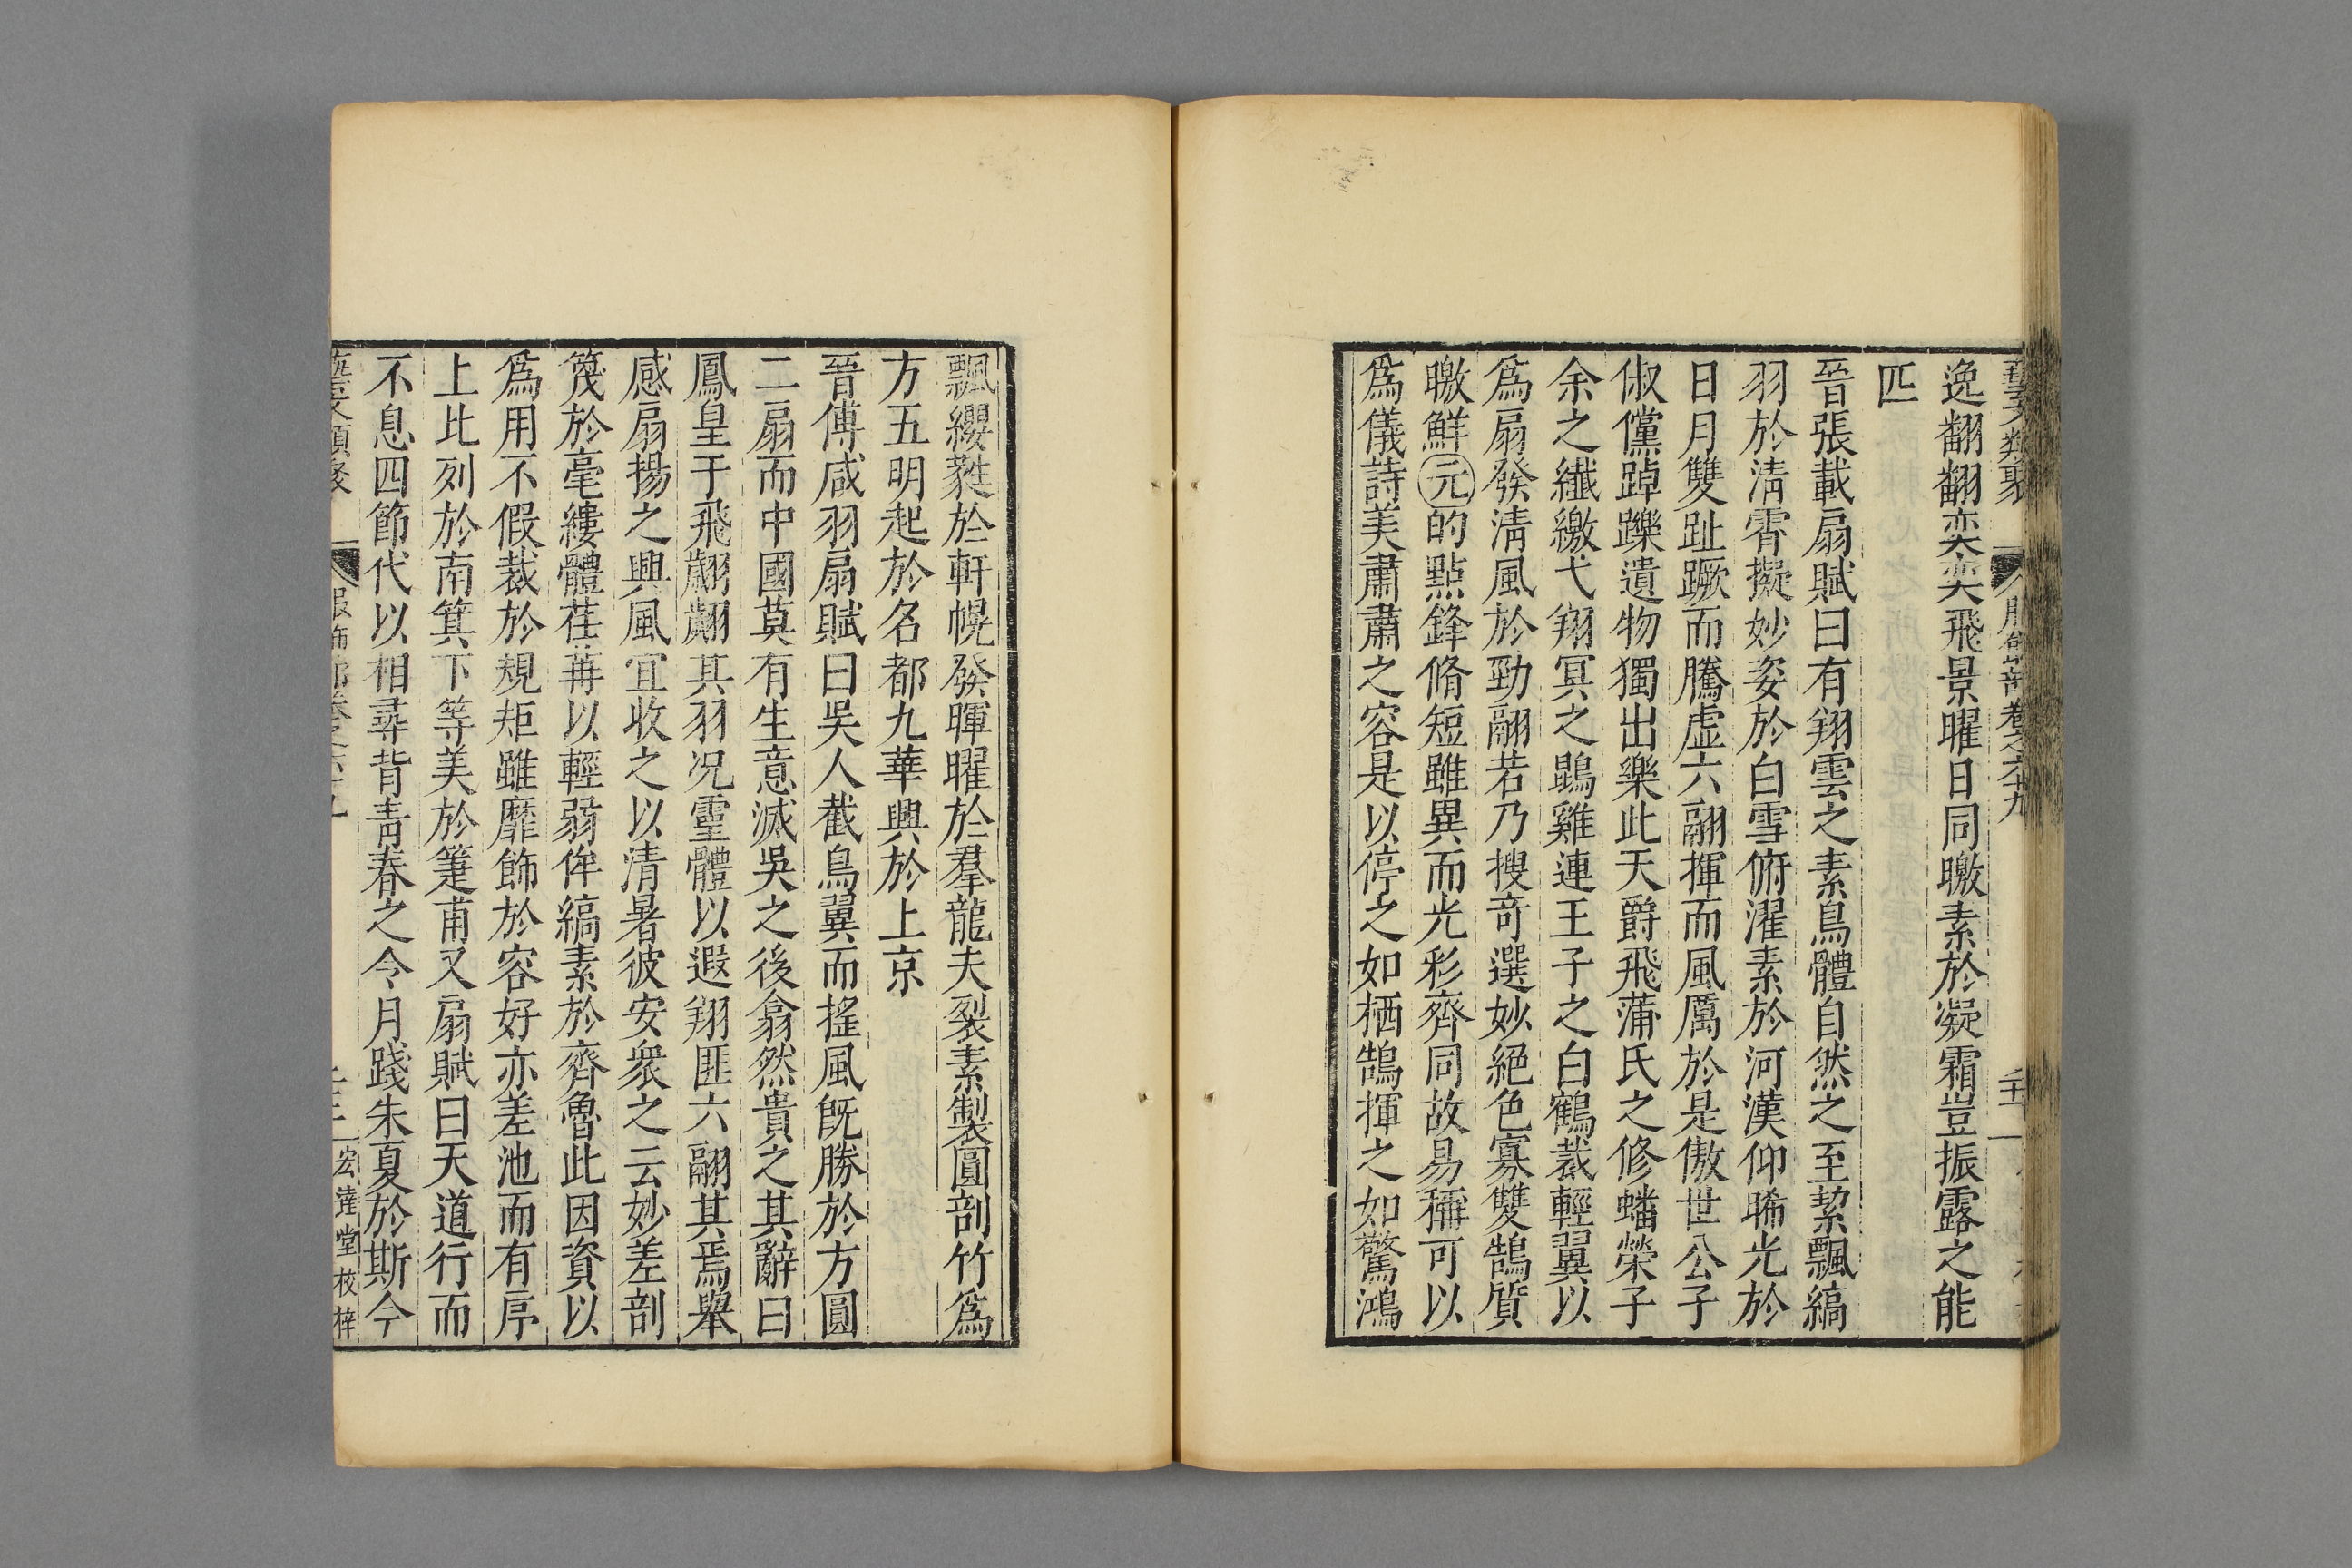 藝文類聚 服飾部卷之六十九
逸翻翻奕奕飛景曜日同曒素於凝霜豈振露之能
匹
晉張載扇賦曰有翔雲之素鳥體自然之至絜飄縞
羽於清霄擬妙姿於白雪俯濯素於河漢仰晞光於
日月雙趾蹶而騰虛六翮揮而風厲於是傲世公子
俶儻踔躒遺物獨出樂此天爵飛蒲氏之修蟠榮子
余之纖繳弋翔冥之鵾雞連王子之白鶴裁輕翼以
為扇發清風於勁翮若乃搜奇選妙絕色寡雙鵠質
曒鮮元的點鋒脩短雖異而光彩齊同故易稱可以
為儀詩美肅肅之容是以停之如栖鵠揮之如驚鴻
飄纓蕤於軒幌發暉曜於羣龍夫裂素製圓剖竹為
方五明起於名都九華興於上京
晉傅咸羽扇賦曰吳人截鳥翼而搖風旣勝於方圓
二扇而中國莫有生意滅吳之後翕然貴之其辭曰
鳳皇于飛翽翽其羽况靈體以遐翔匪六翮其焉舉
感扇揚之興風宜收之以清暑彼安衆之云妙差剖
篾於毫縷體荏苒以輕弱侔縞素於齊魯此因資以
為用不假裁於規矩雖靡飾於容好亦差池而有序
上比列於南箕下等美於箑莆又扇賦曰天道行而
不息四節代以相尋背青春之令月踐朱夏於斯今
藝文類聚 服飾部卷之六十九 宏達堂校梓